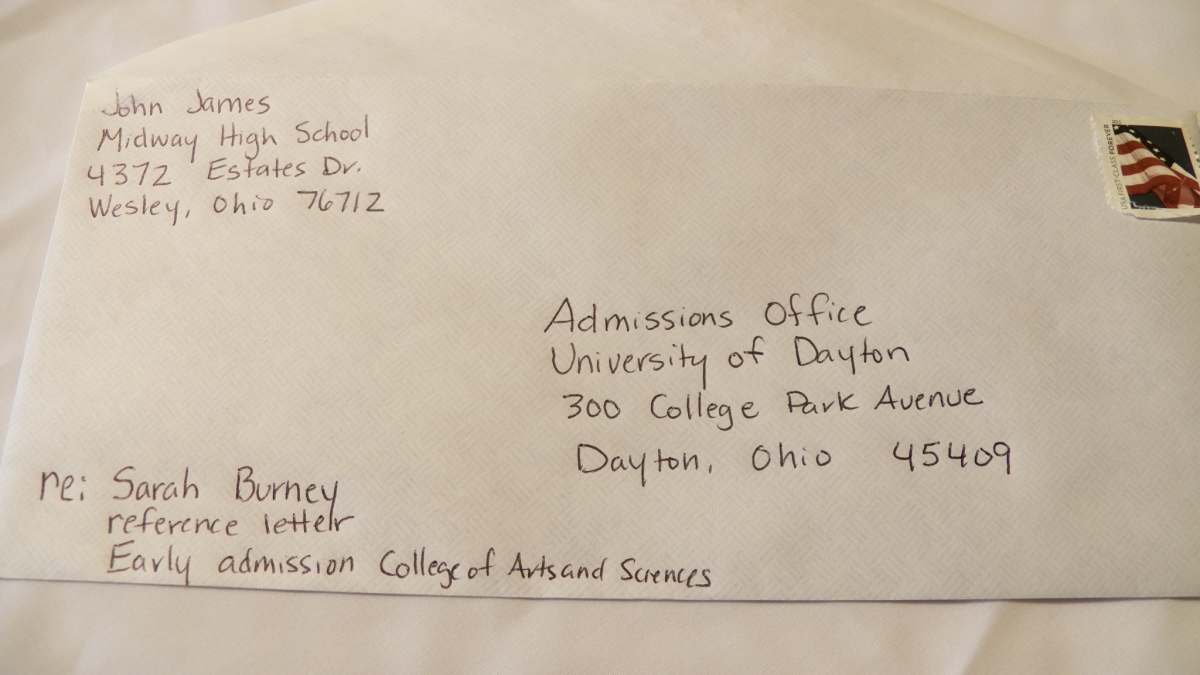 John James
Midway High School
4372 Estates Dr.
Wesley, Ohio 76712
USA FIRST-CLASS FOREVER
Admissions Office
University of Dayton
300 College Park Avenue
Dayton, Ohio 45409
re: Sarah Burney
reference letter
Early admission College of Arts and Sciences